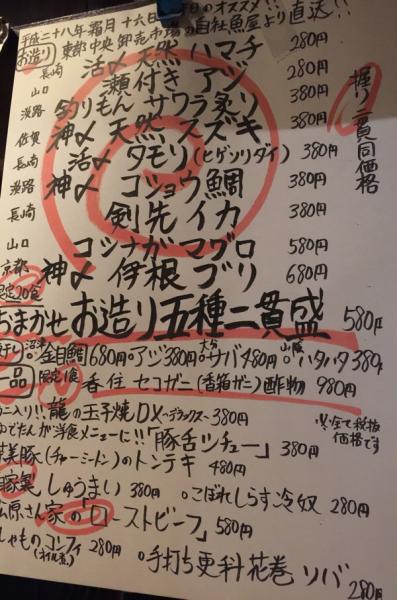 平成二十八年霜月十六日 本日のオススメ!!
お造り 東都中央卸売市場の自社魚屋より直送!!
長崎 活〆天然ハマチ 280円
山口 瀬付きアジ 280円
淡路 釣りもんサワラ炙り 380円
佐賀 神〆天然スズキ 380円
長崎 活〆タモリ(ヒゲソリダイ) 380円
淡路 神〆コショウ鯛 380円
長崎 剣先イカ 380円
山口 コシナガマグロ 580円
京都 神〆伊根ブリ 680円
握り二貫同価格
限定20食
おまかせお造り五種二貫盛 580円
干し 沼津 金目鯛680円。アジ380円。大分 サバ480円。山陰 ハタハタ380円
一品 限定1食 香住 セコガニ(香箱ガニ)酢物 980円
ニ入り!!龍の玉子焼DX〜デラックス〜380円
でたんが洋食メニューに!!「豚舌シチュー」380円
美豚(チャーミートン)のトンテキ 480円
豚製しゅうまい 380円 。こぼれしらす冷奴 280円
原さん家の「ローストビーフ」580円
しゃものコンフィ(オイル煮) 280円 。手打ち更科花巻ソバ 280円
※全て税抜価格です